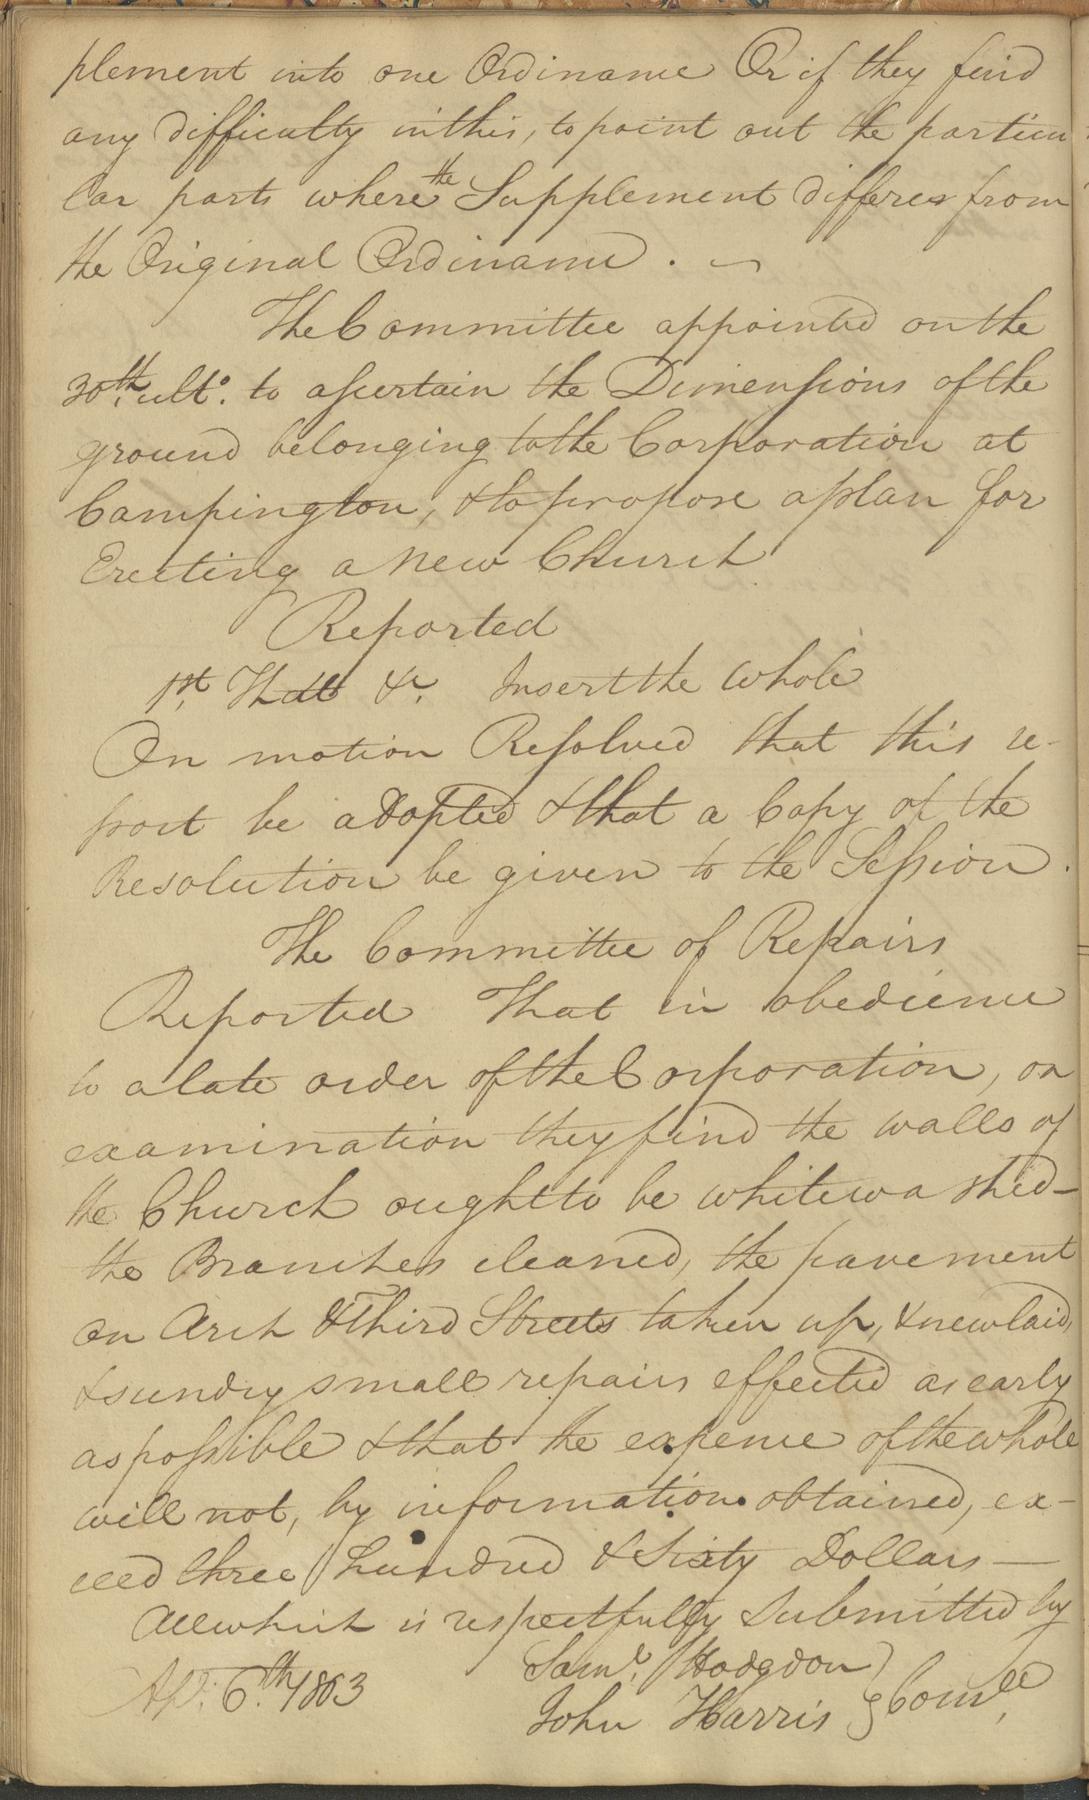 plement into one Ordinance Or if they find
any difficulty in this, to point out the particu
lar parts where the Supplement differes from
the Original Ordinance.
The Committee appointed on the
30th. ulto. to ascertain the Dimensions of the
ground belonging to the Corporation at
Campington, & to propose a plan for
Erecting a New Church
Reported
1st. That &c. Insert the whole
On motion Resolved that this re-
port be adopted & that a Copy of the
Resolution be given to the Session.
The Committee of Repairs
Reported That in obedience
to a late order of the Corporation, on
examination they find the walls of
the Church ought to be whitewashed—
the Branches cleaned, the pavement
on Arch & Third Streets taken up, & new laid,
& sundry small repairs effected as early
as possible & that the expence of the whole
will not, by information obtained, ex-
ceed three hundred & Sixty Dollars—
All which is respectfully Submitted by
Saml. Hodgdon
Ap. 6th. 1803 John Harris } Comee.